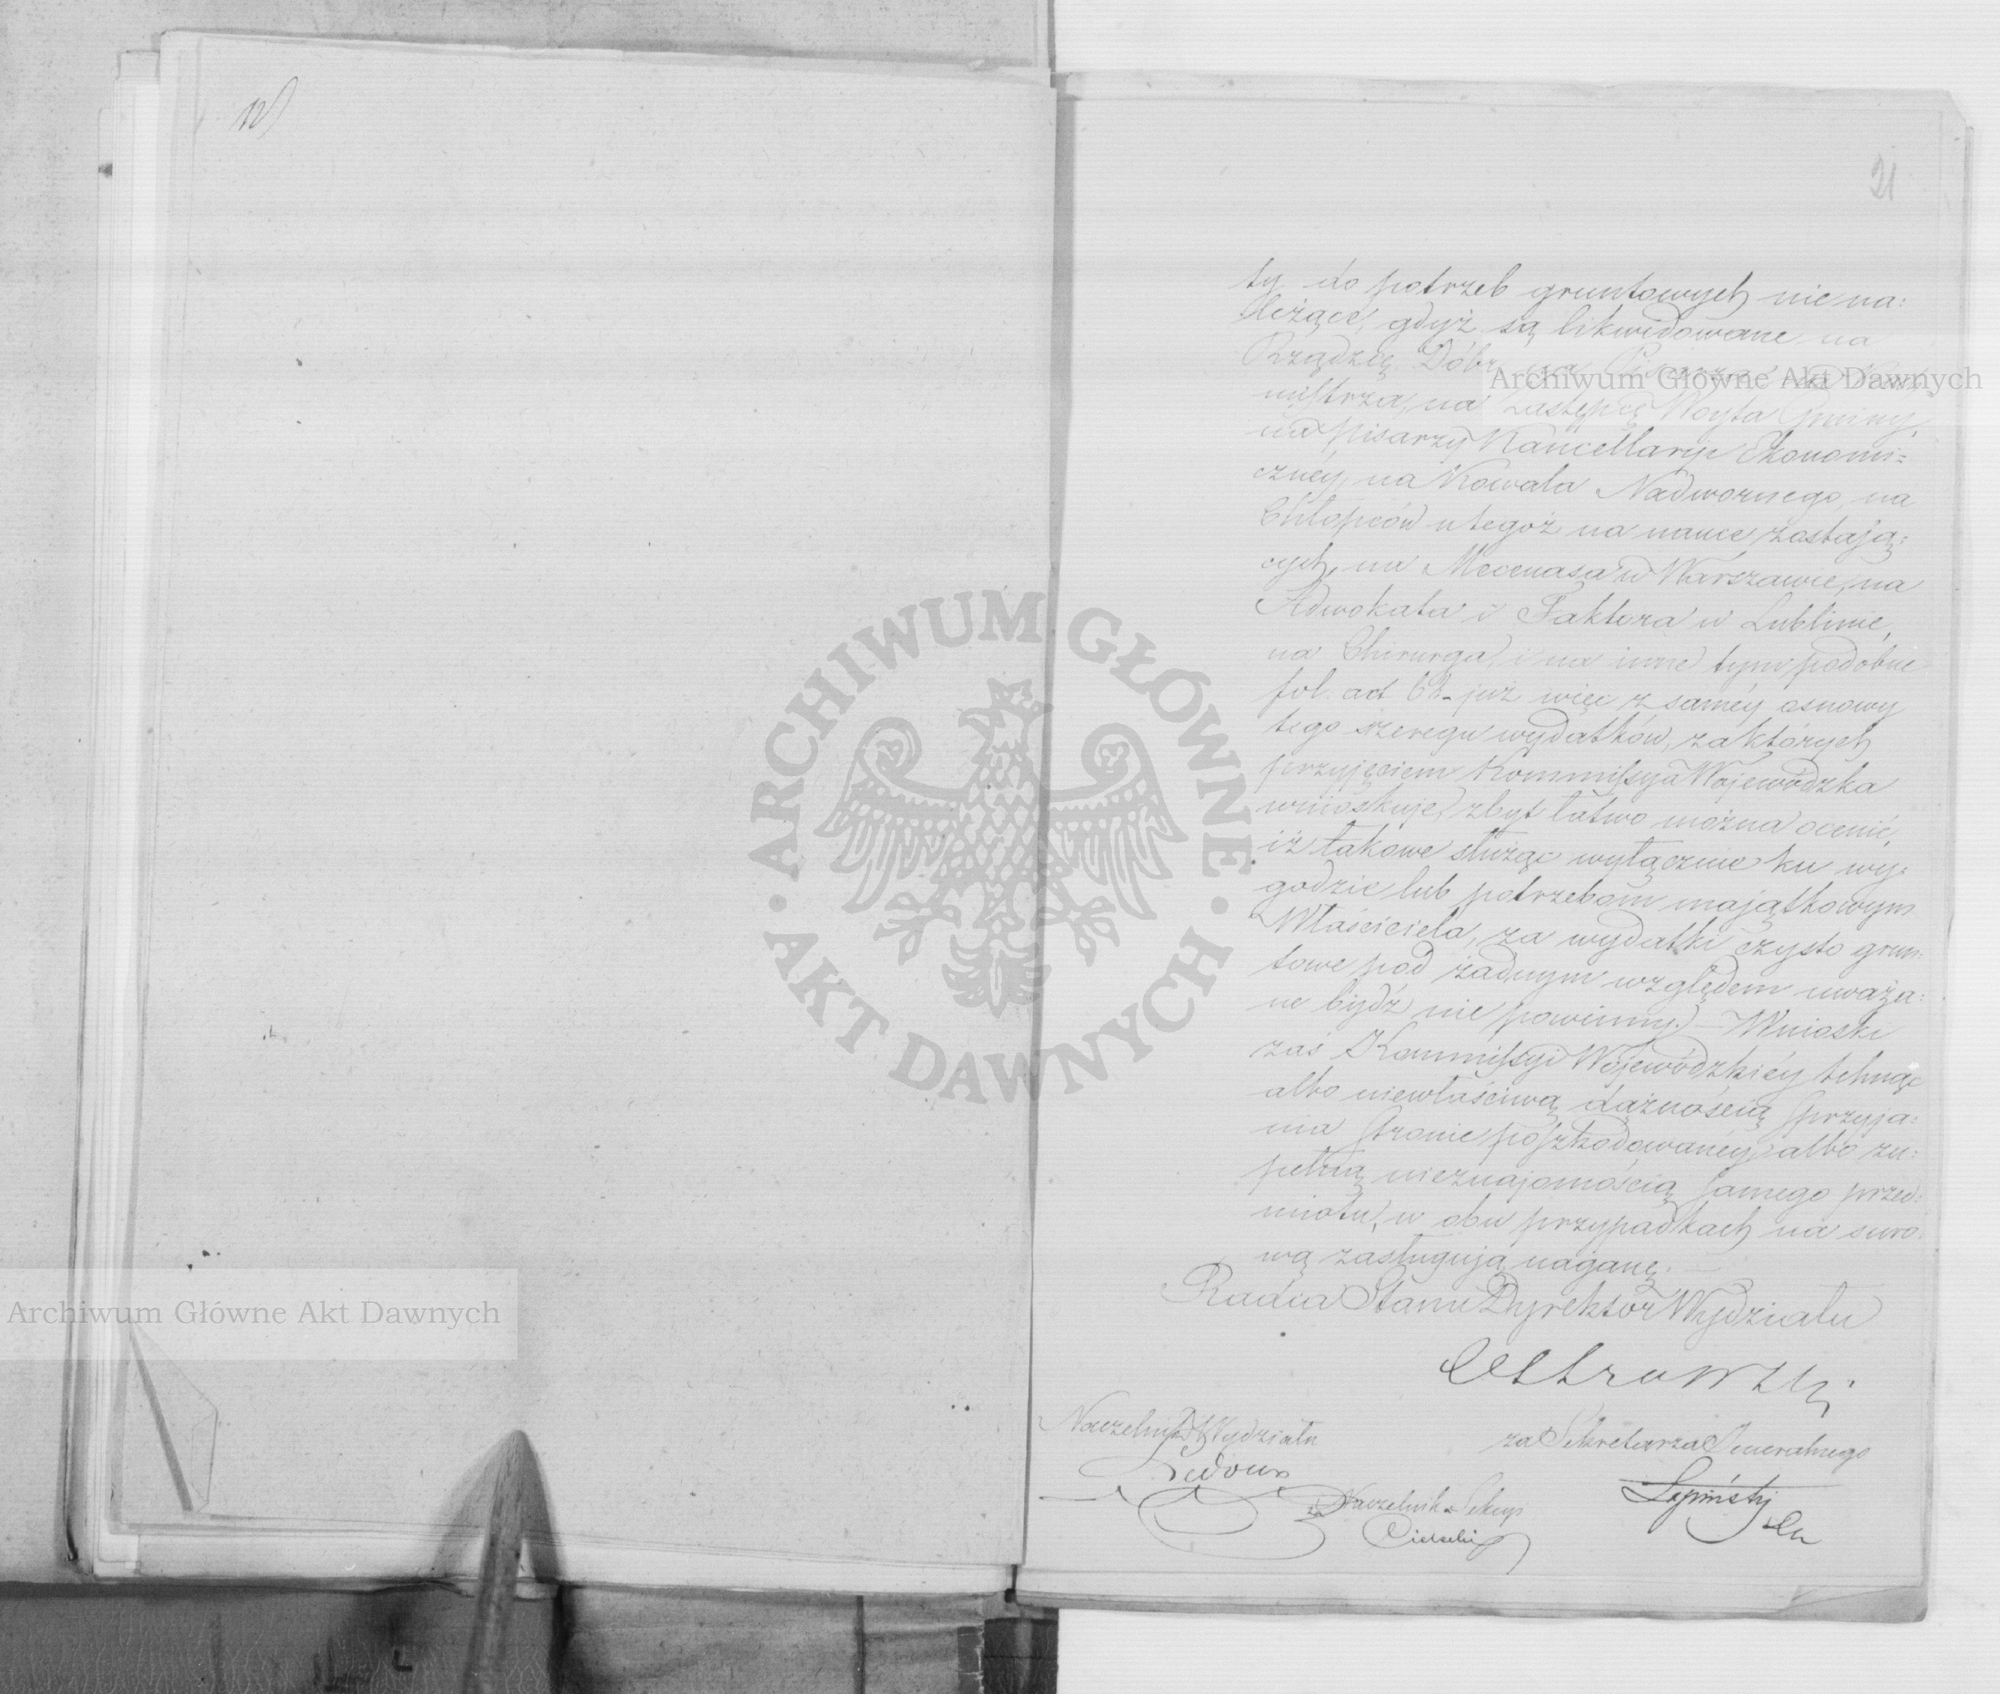 21
ty do potrzeb gruntowych nie na:
leżące, gdyż są likwidowane na
Rządzcę Dóbr, na Pisarza, na
mistrza, na Zastępcę Woyta Gminy,
na pisarzy Kancellaryi Ekonomi=
cznéy, na Kowala Nadwornego, na
Chłopców u tegoż na nauce zostają:
cych, na Mecenasa w Warszawie, na
Adwokata i Faktora w Lublinie,
na Chirurga, i na inne tym podobne
fol. act 62 już więc z saméy osnowy
tego szeregu wydatków, za których
przyjęciem Kommissya Wojewódzka
wnioskuje, zbyt łatwo można ocenić,
iż takowe służąc wyłącznie ku wy:
godzie lub potrzebom majątkowym
Właściciela, za wydatki czysto grun:
towe pod żadnym względem uważa:
ne bydź nie powinny. — Wnioski
zaś Kommissyi Wojewódzkiéy tchnąc
albo niewłaściwą dążnością sprzyja:
nia stronie poszkodowaney, albo zu:
pełną nieznajomością samego przed:
miotu, w obu przypadkach na suro:
wą zasługują naganę. —
Radca Stanu Dyrektor Wydziału
Ostrowski
Naczelnik Wydziału
za Sekretarza Jeneralnego
Ledoux
Naczelnik Sekcyi
Łapiński
Cielecki
Archiwum Główne Akt Dawnych
Archiwum Główne Akt Dawnych
ARCHIWUM GŁÓWNE
AKT DAWNYCH